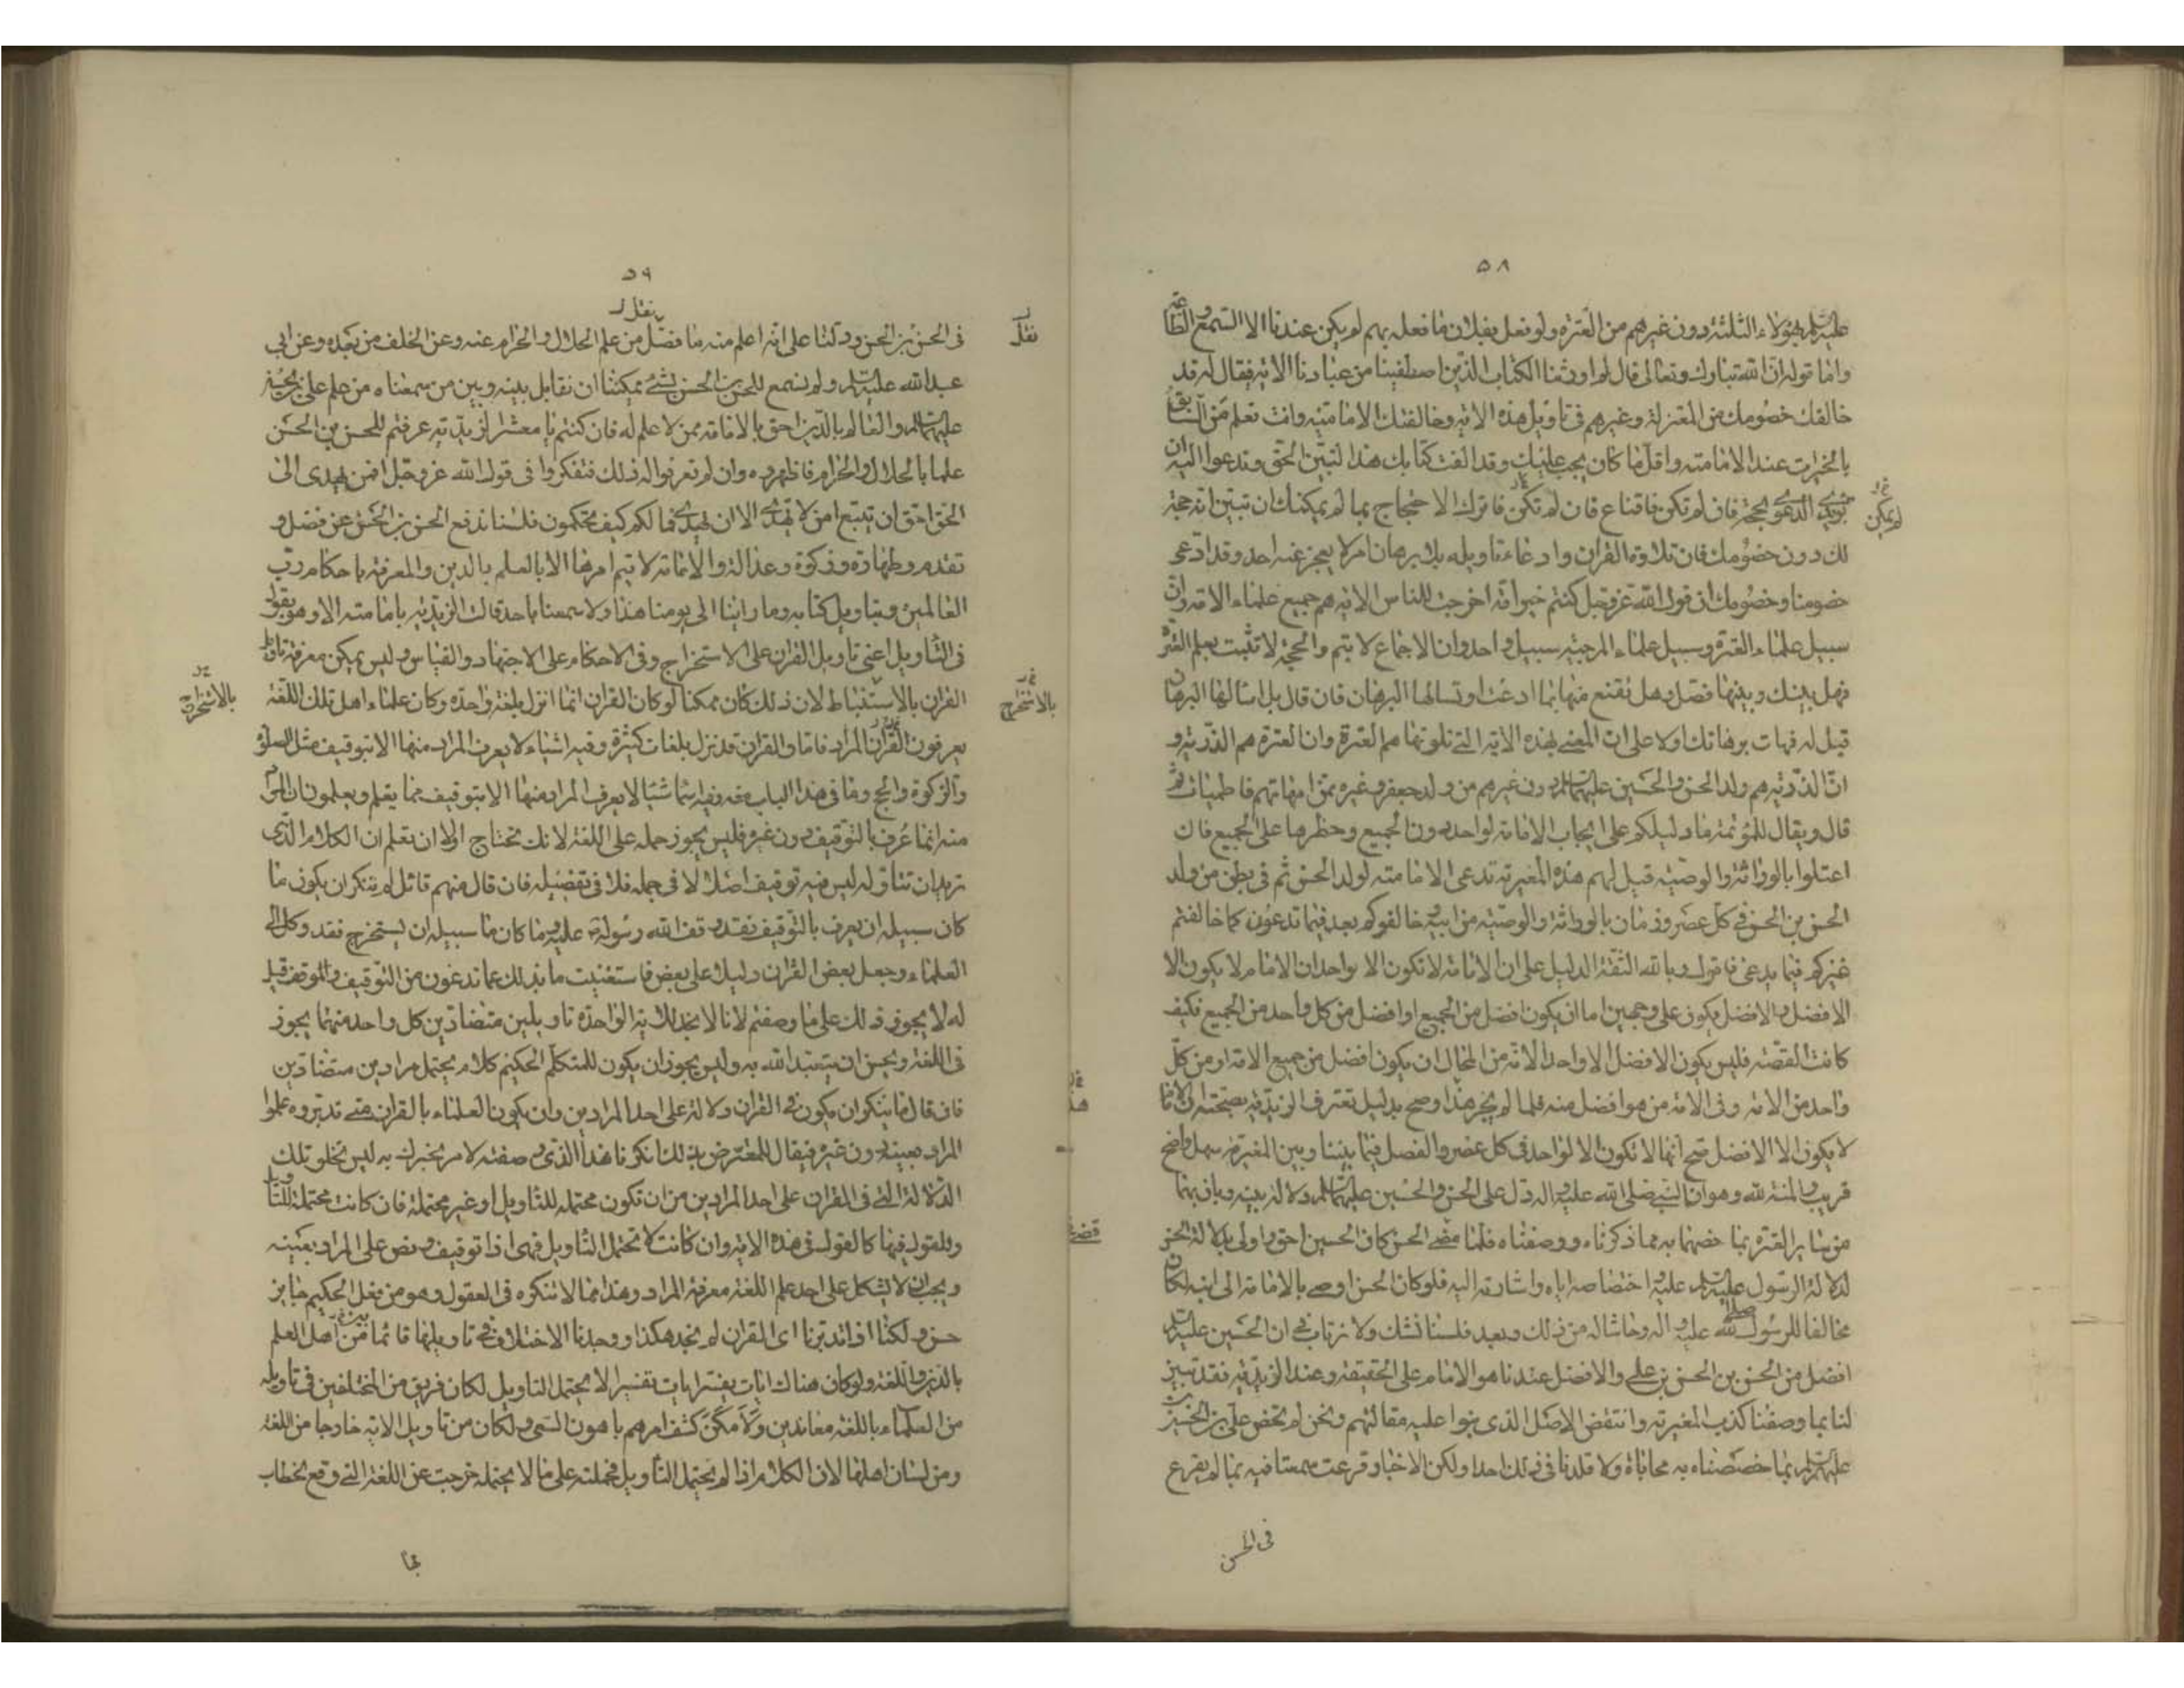 ٥٨
عليه السلم بهؤلاء الثلثة دون غيرهم من العترة ولو فعل بفلان ما فعله بهم لم يكن عندنا الا السمع والطاعة
واما قوله ان الله تبارك وتعالى قال ثم اورثنا الكتاب الذين اصطفينا من عبادنا الاية فيقال له قد
خالفك خصومك من المعتزلة وغيرهم فى تاويل هذه الاية وخالفتك الامامية وانت تعلم من السابق
بالخيرات عند الامامية واقل ما كان يجب عليك وقد الفت كتابك هذا لتبين الحق وتدعوا اليه ان
تؤيد الدعوى بحجة فان لم تكن فاقناع فان لم تكن فاترك الاحتجاج بما لم يمكنك ان تبين انه حجة
لم يمكن
لك دون خصومك فان تلاوة القران وادعاء تاويله بلا برهان امر لا يعجز عنه احد وقد ادعى
خصومنا وخصومك ان قول الله عز وجل كنتم خير امة اخرجت للناس الاية هم جميع علماء الامة وان
سبيل علماء العترة وسبيل علماء المرجئة سبيل واحد وان الاجماع لا يتم والحجة لا تثبت بعلم العترة
فهل بينك وبينها فصل وهل تقنع منها بما ادعت او تسالها البرهان فان قال بل اسالها البرهان
قيل له فهات برهانك اولا على ان المعنى بهذه الاية التى تلوتها هم العترة وان العترة هم الذرية و
ان الذرية هم ولد الحسن والحسين عليهما السلم دون غيرهم من ولد جعفر وغيره ممن امهاتهم فاطميات ثم
قال ويقال للمؤتمة ما دليلكم على ايجاب الامامة لواحد دون الجميع وحظرها على الجميع فان
اعتلوا بالوراثة والوصية قيل لهم هذه المغيرية تدعى الامامة لولد الحسن ثم فى بطن من ولد
الحسن بن الحسن فى كل عصر وزمان بالوراثة والوصية من ابيه وخالفوكم بعد فيما تدعون كما خالفتم
غيركم فيما يدعى فاقول وبالله الثقة الدليل على ان الامامة لا تكون الا لواحد ان الامام لا يكون الا
الافضل والافضل يكون على وجهين اما ان يكون افضل من الجميع او افضل من كل واحد من الجميع فكيف
كانت القصة فليس يكون الافضل الا واحدا لانه من المحال ان يكون افضل من جميع الامة او من كل
واحد من الامة وفى الامة من هو افضل منه فلما لم يجز هذا وصح بدليل تعترف الزيدية بصحته ان الامام
هذا
لا يكون الا الافضل صح انها لا تكون الا لواحد فى كل عصر والفصل فيما بيننا وبين المغيرية سهل واضح
قريب والمنة لله وهو ان النبى صلى الله عليه واله دل على الحسن والحسين عليهما السلم دلالة بينة وبان بهما
من ساير العترة بما خصهما به مما ذكرناه ووصفناه فلما مضى الحسن كان الحسين احق واولى بدلالة الحسن
لدلالة الرسول عليه السلم عليه واختصاصه اياه واشارته اليه فلو كان الحسن اوصى بالامامة الى ابنه لكان
مخالفا للرسول صلى الله عليه واله وحاشا له من ذلك وبعد فلسنا نشك ولا نرتاب فى ان الحسين عليه السلم
افضل من الحسن بن الحسن بن على والافضل عندنا هو الامام على الحقيقة وعند الزيدية فقد تبين
لنا بما وصفنا كذب المغيرية وانتقض الاصل الذى بنوا عليه مقالتهم ونحن لم نخص على بن الحسين
عليهما السلم بما خصصناه به محاباة ولا قلدنا فى ذلك احدا ولكن الاخبار قرعت سمعنا فيه بما لم يقرع
فى الحسن
٥٩
نقل
فى الحسن بن الحسن ودلنا على انه اعلم منه ما فضل من علم الحلال والحرام عنه وعن الخلف من بعده وعن ابى
عبد الله عليه السلم ولم نسمع للحسن بن الحسن بشئ يمكننا ان نقابل بينه وبين من سمعناه من علم على بن الحسين
عليهما السلم والعالم بالدين احق بالامامة ممن لا علم له فان كنتم يا معشر الزيدية عرفتم للحسن بن الحسن
علما بالحلال والحرام فاظهروه وان لم تعرفوا له ذلك فتفكروا فى قول الله عز وجل افمن يهدى الى
الحق احق ان يتبع امن لا يهدى الا ان يهدى فما لكم كيف تحكمون فلسنا ندفع الحسن بن الحسن عن فضل و
تقدم وطهارة وزكوة وعدالة والامامة لا يتم امرها الا بالعلم بالدين والمعرفة باحكام رب
العالمين وبتاويل كتابه وما راينا الى يومنا هذا ولا سمعنا باحد قالت الزيدية بامامته الا وهو يقول
فى التاويل اعنى تاويل القران على الاستخراج وفى الاحكام على الاجتهاد والقياس وليس يمكن معرفة تاويل
القران بالاستنباط لان ذلك كان ممكنا لو كان القران انما انزل بلغة واحدة وكان علماء اهل تلك اللغة
بالاستخراج
يعرفون القران المراد فاما والقران قد نزل بلغات كثيرة وفيه اشياء لا يعرف المراد منها الا بتوقيف مثل الصلوة
والزكوة والحج وما فى هذا الباب منه وفيه اشياء لا يعرف المراد منها الا بتوقيف مما يعلم ويعلمون ان المراد
منه انما عرف بالتوقيف دون غيره فليس يجوز حمله على اللغة لانك تحتاج اولا ان تعلم ان الكلام الذى
تريد ان تتاوله ليس فيه توقيف اصلا لا فى جمله فلا فى تفصيله فان قال منهم قائل لم ينكر ان يكون ما
كان سبيله ان يعرف بالتوقيف فقد وقف الله رسوله ص عليه وما كان ما سبيله ان يستخرج فقد وكل الى
العلماء وجعل بعض القران دليلا على بعض فاستغنيت ما بذلك عما تدعون من التوقيف والموقف قيل
له لا يجوز ذلك على ما وصفتم لانا لا نجد للاية الواحدة تاويلين متضادين كل واحد منهما يجوز
فى اللغة ويحسن ان يتعبد الله به وليس يجوز ان يكون للمتكلم الحكيم كلام يحتمل مرادين متضادين
فان قال ما ينكر ان يكون فى القران دلالة على احد المرادين وان يكون العلماء بالقران متى تدبروه علموا
المراد بعينه دون غيره فيقال للمعترض بذلك انكرنا هذا الذى وصفته لامر نخبرك به ليس تخلو تلك
الدلالة التى فى القران على احد المرادين من ان تكون محتملة للتاويل او غير محتملة فان كانت محتملة للتاويل
والقول فيها كالقول فى هذه الاية وان كانت لا تحتمل التاويل فهى اذا توقيف ونص على المراد بعينه
ويجب ان لا يشكل على احد علم اللغة معرفة المراد وهذا مما لا ننكره فى العقول وهو من فعل الحكيم جايز
حسن ولكنا اذا تدبرنا اى القران لم نجد هكذا ووجدنا الاختلاف فى تاويلها قائما من اهل العلم
بالدين واللغة ولو كان هناك ايات تفسر ايات تفسيرا لا يحتمل التاويل لكان فريق من المختلفين فى تاويله
من العلماء باللغة معاندين ولامكن كشف امرهم باهون السعى ولكان من تاويل الاية خارجا من اللغة
ومن لسان اهلها لان الكلام اذا لم يحتمل التاويل فحملته على ما لا يحتمله خرجت عن اللغة التى وقع الخطاب
بها